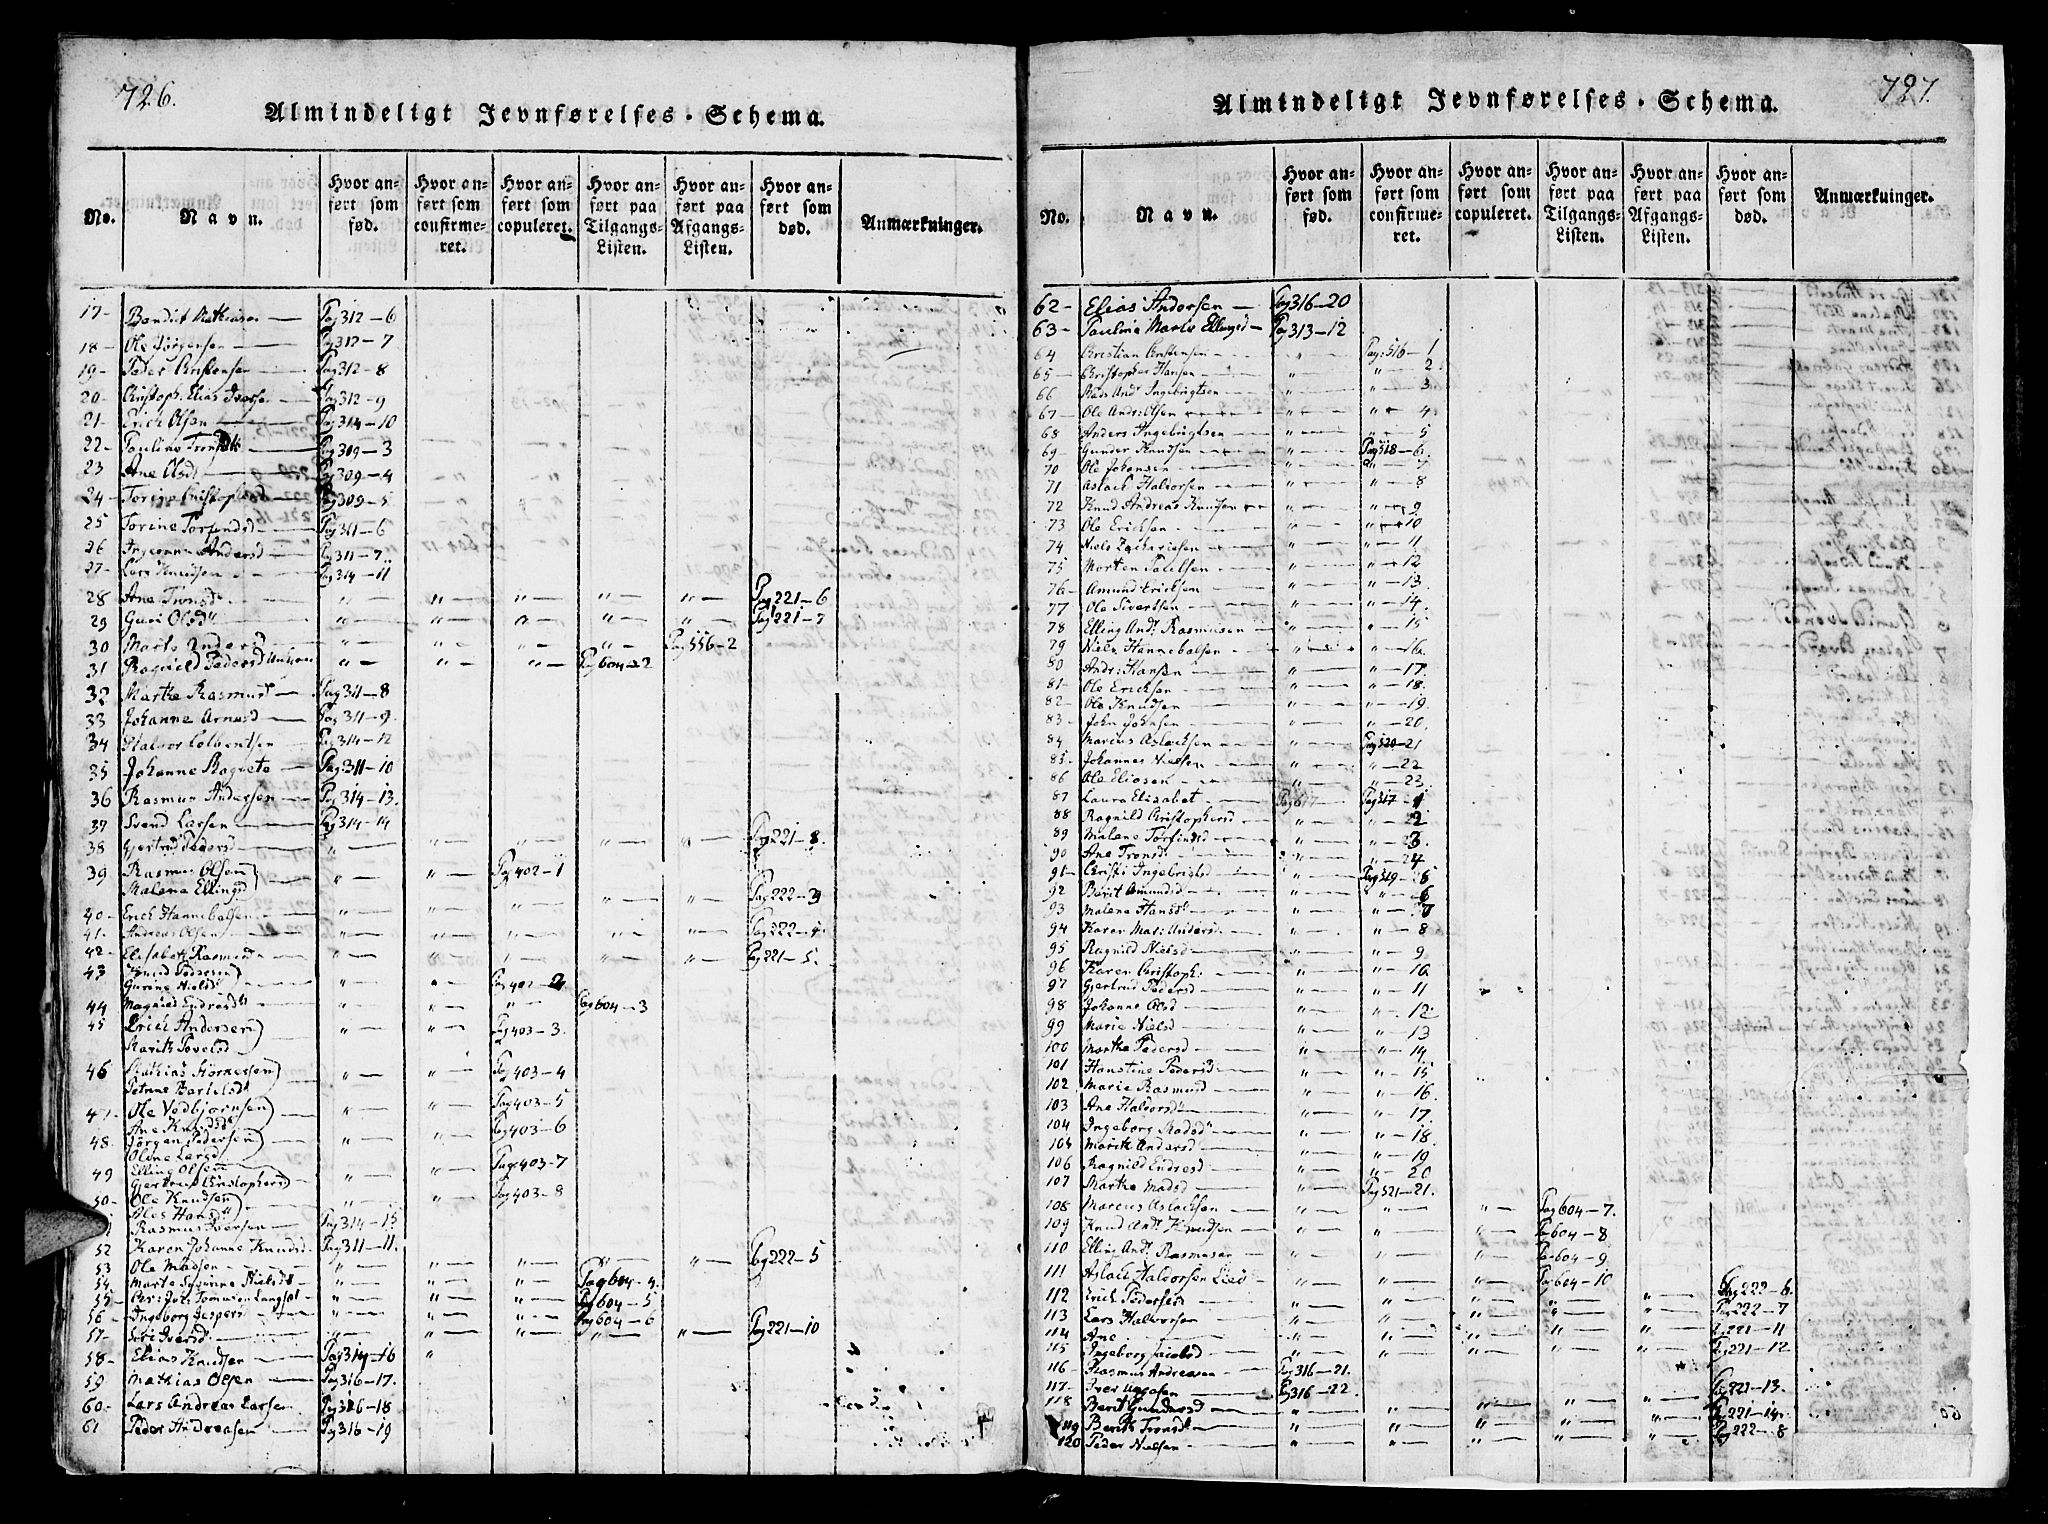 726.
Almindeligt Jevnførelses-Schema.
No. Navn. Hvor anført som fød. Hvor anført som confirmeret. Hvor anført som copuleret. Hvor anført paa Tilgangs-Listen. Hvor anført paa Afgangs-Listen. Hvor anført som død. Anmærkninger.
17- Pag 312-6
18- Ole Jörgensen Pag 312-7
19- Peder Pag 312-8
20- Christoph. Elias Pag 312-9
21- Erich Olsen Pag 314-10
22- Pauline Pag 309-3
23 Ane Olsd Pag 309-4
24- Pag 309-5
25 Torine Pag 311-6
26 Andersd Pag 311-7
27- Lars Knudsen Pag 314-11
28 Ane Tronsd " " " " " Pag 221-6
29 Guri Olsd " " " " " Pag 221-7
30 Marte Andersd " " " " Pag 556-2
31 Ragnild Pedersd " " " Pag 604-2
32 Marthe Rasmusd Pag 311-8
33 Johanne Arnesd Pag 311-9
34 Halvor Pag 314-12
35 Johanne Pag 311-10
36 Rasmus Andersen Pag 314-13
37 Svend Larsen Pag 314-14
38 Gjertrud Pedersd " " " " " Pag 221-8
39 Rasmus Olsen " " Pag 402-1
Malene Ellingsd
40- Erich Hannebalsen " " " " " Pag 222-3
41- Andreas Olsen " " " " " Pag 222-4
42- Elisabeth Rasmusd " " " " " Pag 221-5
43 Knud Pedersen " " Pag 402-2
Gurine Nielsd
44 Magnild Endresd " " " Pag 604-3
45 Erich Andersen " " Pag 403-3
Marith Povelsd
46 " " Pag 403-4
Petrine
47- Ole Vedbjørnsen " " Pag 403-5
Ane Knudsd
48- Jörgen Pedersen " " Pag 403-6
Oline Larsd
49 Elling Olsen " " Pag 403-7
Gjertrud Christophersd
50- Ole Knudsen " " Pag 403-8
Hansd
Rasmus Iversen Pag 314-15
52 Karen Johanne Knudsd Pag 311-11
53 Ole Madsen " " " " " Pag 222-5
54- Marte Susanne Nielsd " " " Pag 604-4
55- " " " Pag 604-5
56 Ingeborg Jespersd " " " Pag 604-6
57- Iversd " " " " " Pag 221-10
58- Elias Knudsen Pag 314-16
59 Mathias Olsen Pag 316-17
60- Lars Andreas Larsen Pag 316-18
61 Peder Andreasen Pag 316-19
727.
Almindeligt Jevnførelses-Schema.
No. Navn. Hvor anført som fød. Hvor anført som confirmeret. Hvor anført som copuleret. Hvor anført paa Tilgangs-Listen. Hvor anført paa Afgangs-Listen. Hvor anført som død. Anmærkninger.
62- Elias Andersen Pag 316-20
63- Pauline Marie Ellingsd Pag 313-12
64 Christian Christensen " Pag: 516-1
65- Christopher Hansen " " 2
66 Mads And Ingebrigtsen " " 3
67- Ole Andr: Olsen " " 4
68 Anders Ingebrigtsen " " 5
69- Gunder Knudsen " Pag 518-6
70 Ole Johansen " " 7
71 Aslach Halvorsen " " 8
72 Knud Andreas Knudsen " " 9
73 Ole Ericksen " " 10
74 Niels Zachariesen " " 11
75 Morten Paulsen " " 12
76- Amund Ericksen " " 13
77 Ole Sivertsen " " 14
78 Elling Andr Rasmusen " " 15
79 Niels Hannebalsen " " 16
80 Andr: Hansen " " 17
81- Ole Ericksen " " 18
82- Ole Knudsen " " 19
83- John Johnsen " " 20
84 Marcus Aslachsen " Pag 520-21
85- Johannes Nielsen " " 22
86 Ole Eliasen " " 23
87 Laura Elisabet Pag 517-1
88 Ragnild Christophersd " " 2
89 Malene Torfindsd " " 3
90 Ane Tronsd " " 4
91- Christi Ingebrigtsd " Pag 519-5
92 Berit Amundsd " " 6
93 Malene Hansd " " 7
94 Karen Mar: Andersd " " 8
95 Ragnild Nielsd " " 9
96 Karen Christoph: " " 10
97 Gjertrud Pedersd " " 11
98 Johanne Olsd " " 12
99 Marie Nielsd " " 13
100 Marthe Pedersd " " 14
101 Hanstine Pedersd " " 15
102 Marie Rasmusd " " 16
103 Ane Halvorsd " " 17
104 Ingeborg Madsd " " 18
105 Marith Andersd " " 19
106 Ragnild Endresd " " 20
107 Marthe Madsd " Pag 521-21
108 Marcus Aslachsen " " " Pag 604-7
109 Knud And. Knudsen " " " Pag 604-8
110 Elling And. Rasmusen " " " Pag 604-9
111 Aslach Halvorsen " " " Pag 604-10
112 Erich Pedersen " " " " " Pag 222-6
113 Lars Halvorsen " " " " " Pag 222-7
114 Ane " " " " " Pag 221-11
115 Ingeborg " " " " " Pag 221-12
116 Rasmus Andreasen Pag 316-21
117- Iver Pag 316-22
118 Berit Gundersd " " " " " Pag 221-13
119 Berith Tronsd " " " " " Pag 221-14
120 Peder Nielsen " " " " " Pag 222-8